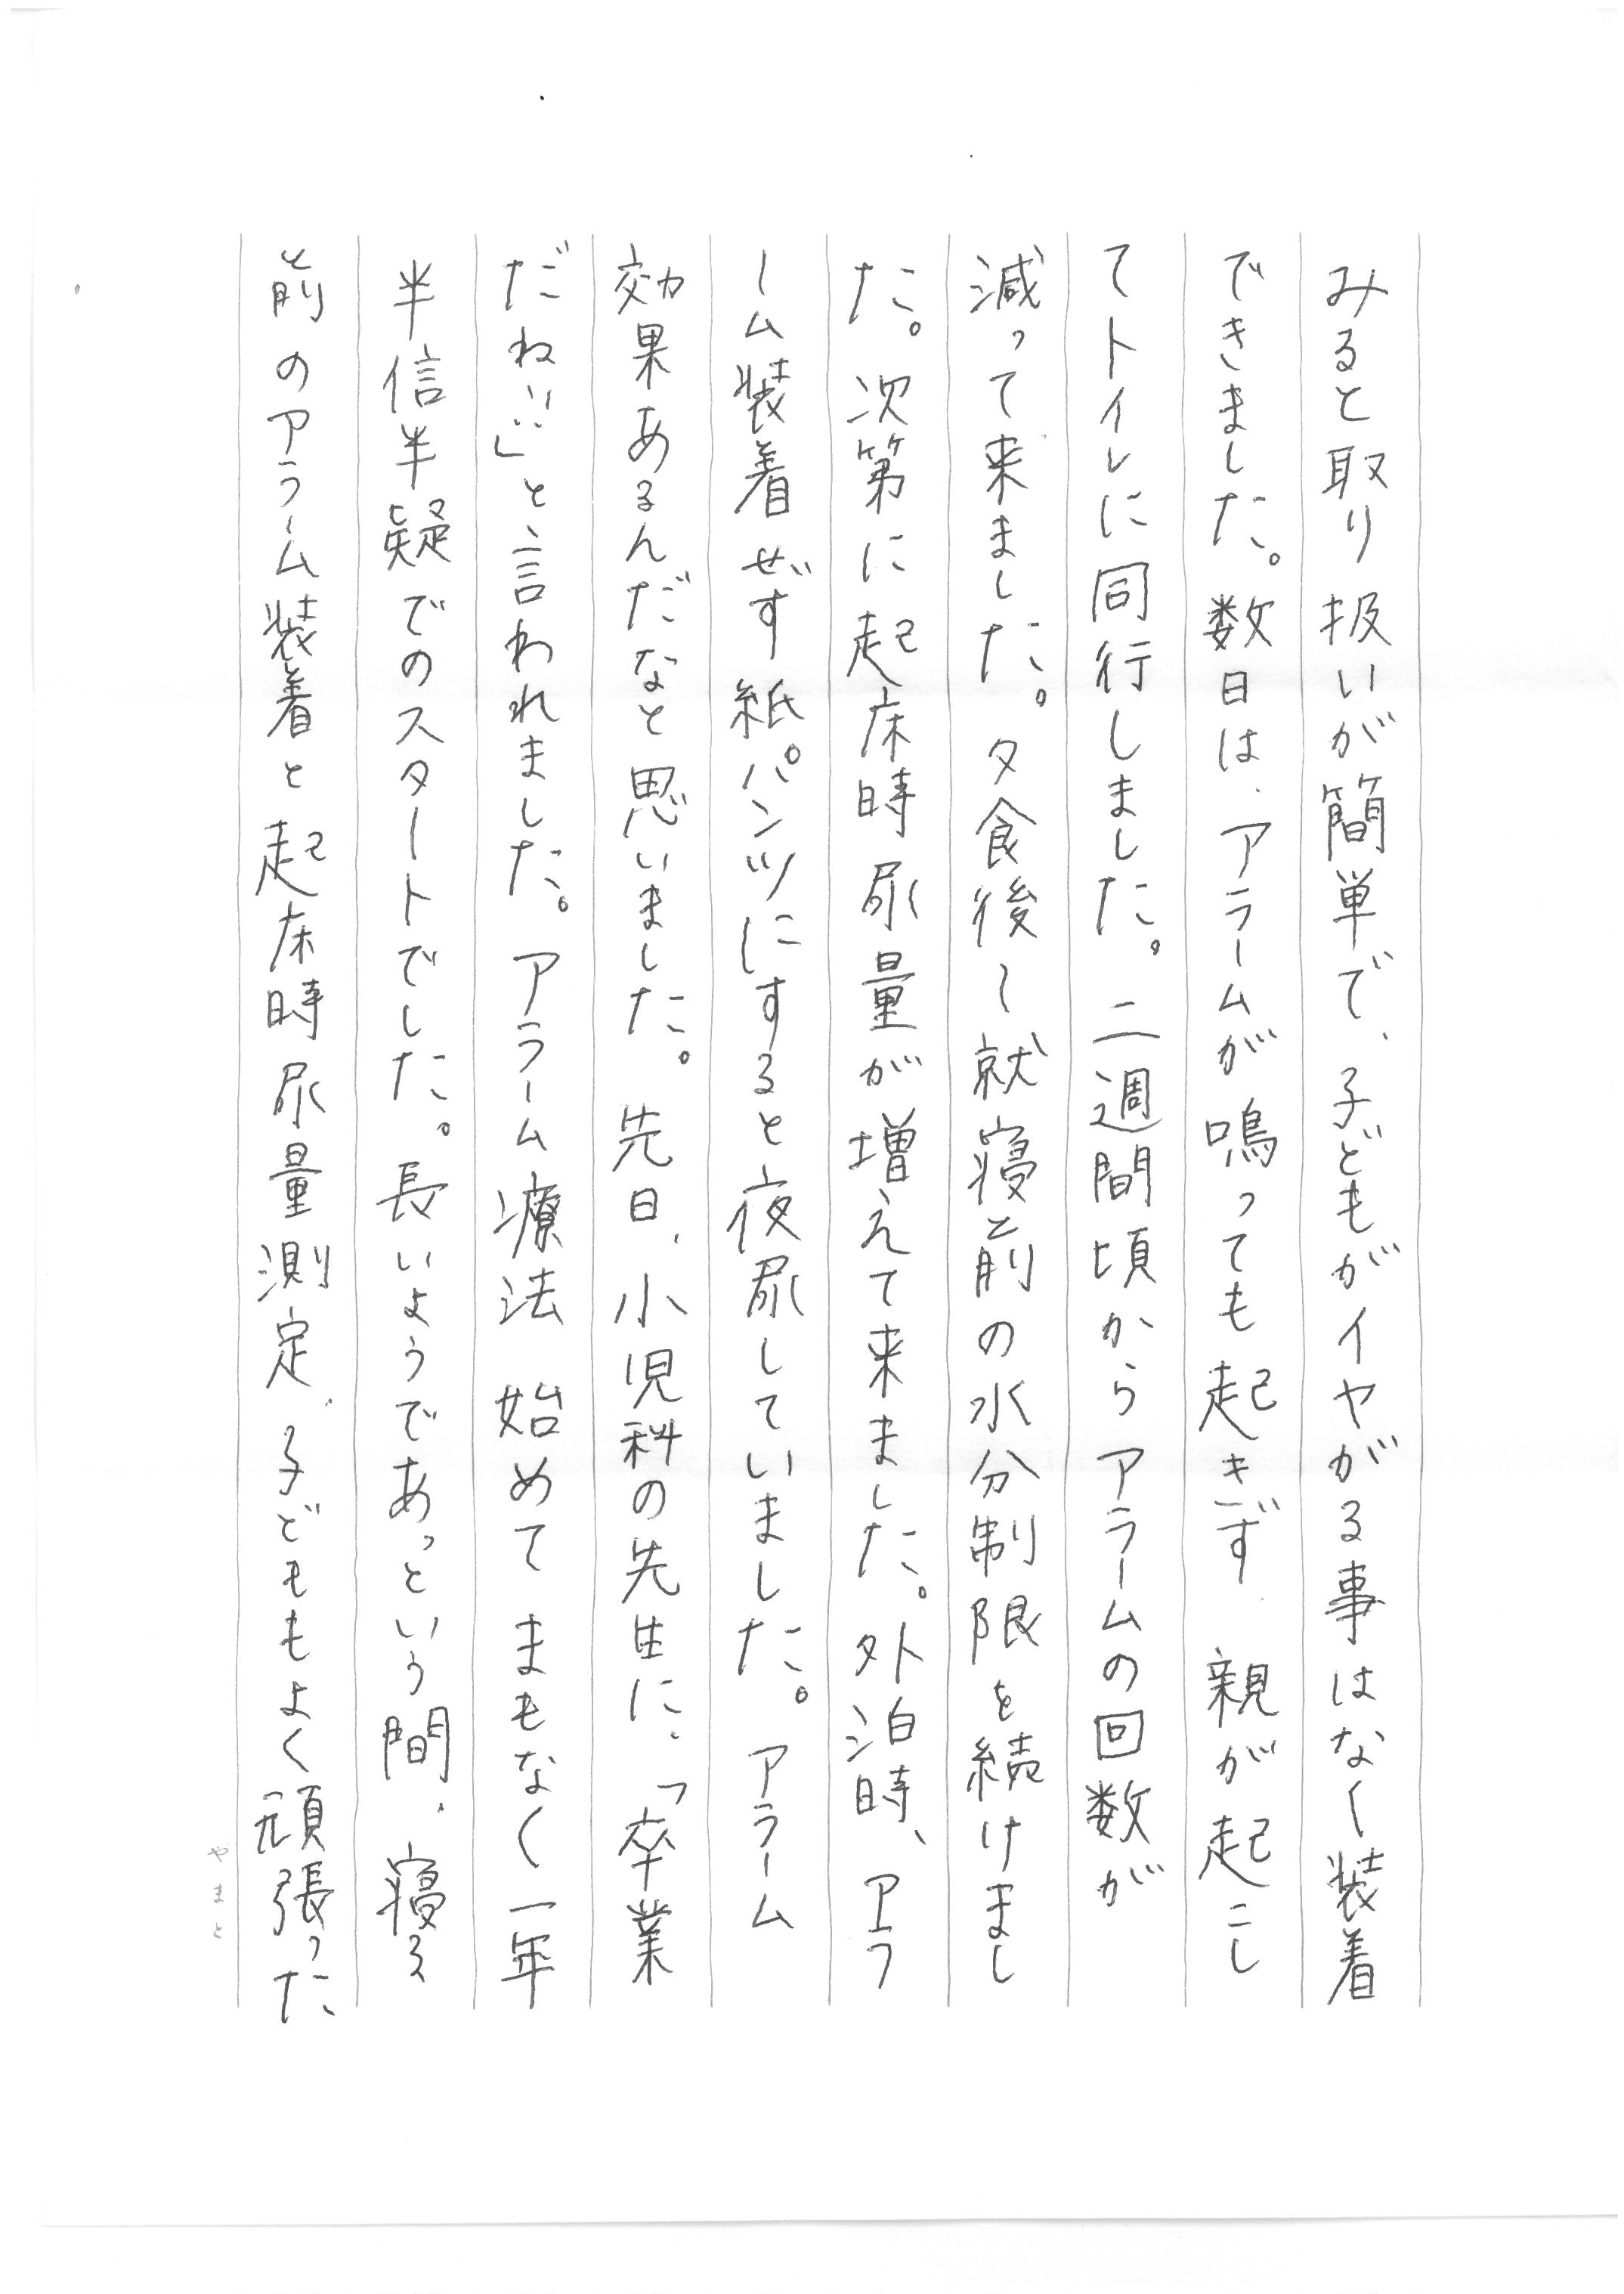 みると取り扱いが簡単で、子どもがイヤがる事はなく装着
できました。数日は、アラームが鳴っても起きず、親が起こし
てトイレに同行しました。二週間頃からアラームの回数が
減って来ました。夕食後~就寝前の水分制限を続けまし
た。次第に起床時尿量が増えて来ました。外泊時、アラ
ーム装着せず紙パンツにすると夜尿していました。アラーム
効果あるんだなと思いました。先日、小児科の先生に、「卒業
だね!!」と言われました。アラーム療法始めてまもなく一年
半信半疑でのスタートでした。長いようであっという間、寝る
前のアラーム装着と起床時尿量測定、子どももよく頑張った
やまと